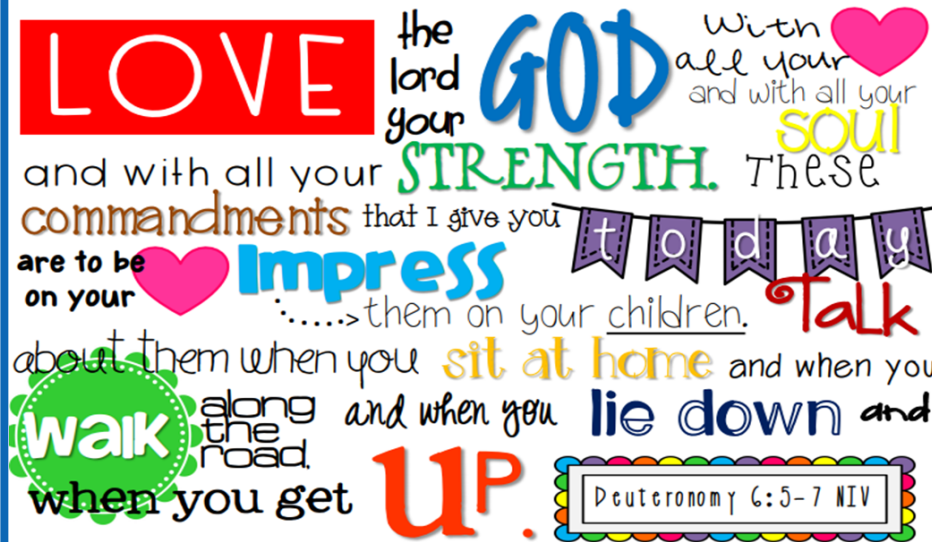 LOVE the lord your GOD with all your
and with all your soul
and with all your STRENGTH. These
commandments that I give you today
are to be on your Impress
them on your children. Talk
about them when you sit at home and when you
walk along the road. and when you lie down and
when you get UP.
Deuteronomy 6:5-7 NIV